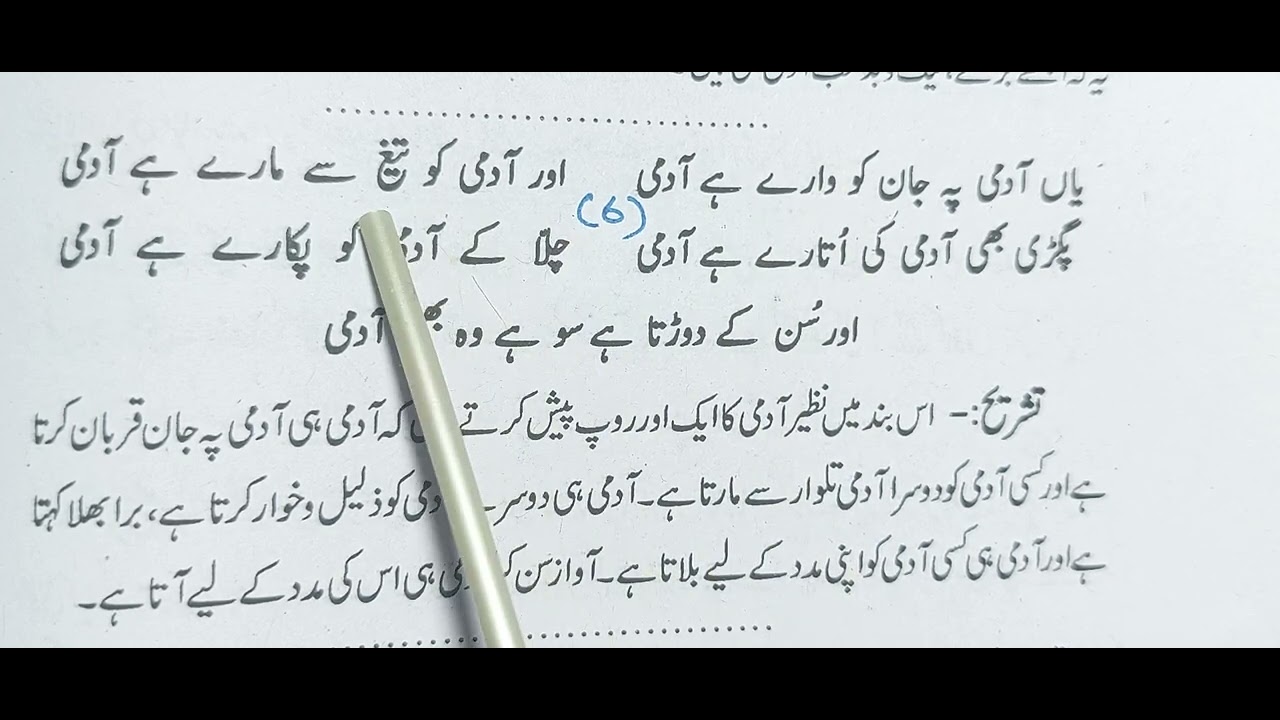 یاں آدمی پہ جان کو وارے ہے آدمی اور آدمی کو تیغ سے مارے ہے آدمی
(6)
پگڑی بھی آدمی کی اُتارے ہے آدمی چلّا کے آدمی کو پکارے ہے آدمی
اور سُن کے دوڑتا ہے سو ہے وہ بھی آدمی
تشریح:- اس بند میں نظیر آدمی کا ایک اور روپ پیش کرتے ہیں کہ آدمی ہی آدمی پہ جان قربان کرتا
ہے اور کسی آدمی کو دوسرا آدمی تلوار سے مارتا ہے۔ آدمی ہی دوسرے آدمی کو ذلیل و خوار کرتا ہے، برا بھلا کہتا
ہے اور آدمی ہی کسی آدمی کو اپنی مدد کے لیے بلاتا ہے۔ آواز سن کر آدمی ہی اس کی مدد کے لیے آتا ہے۔